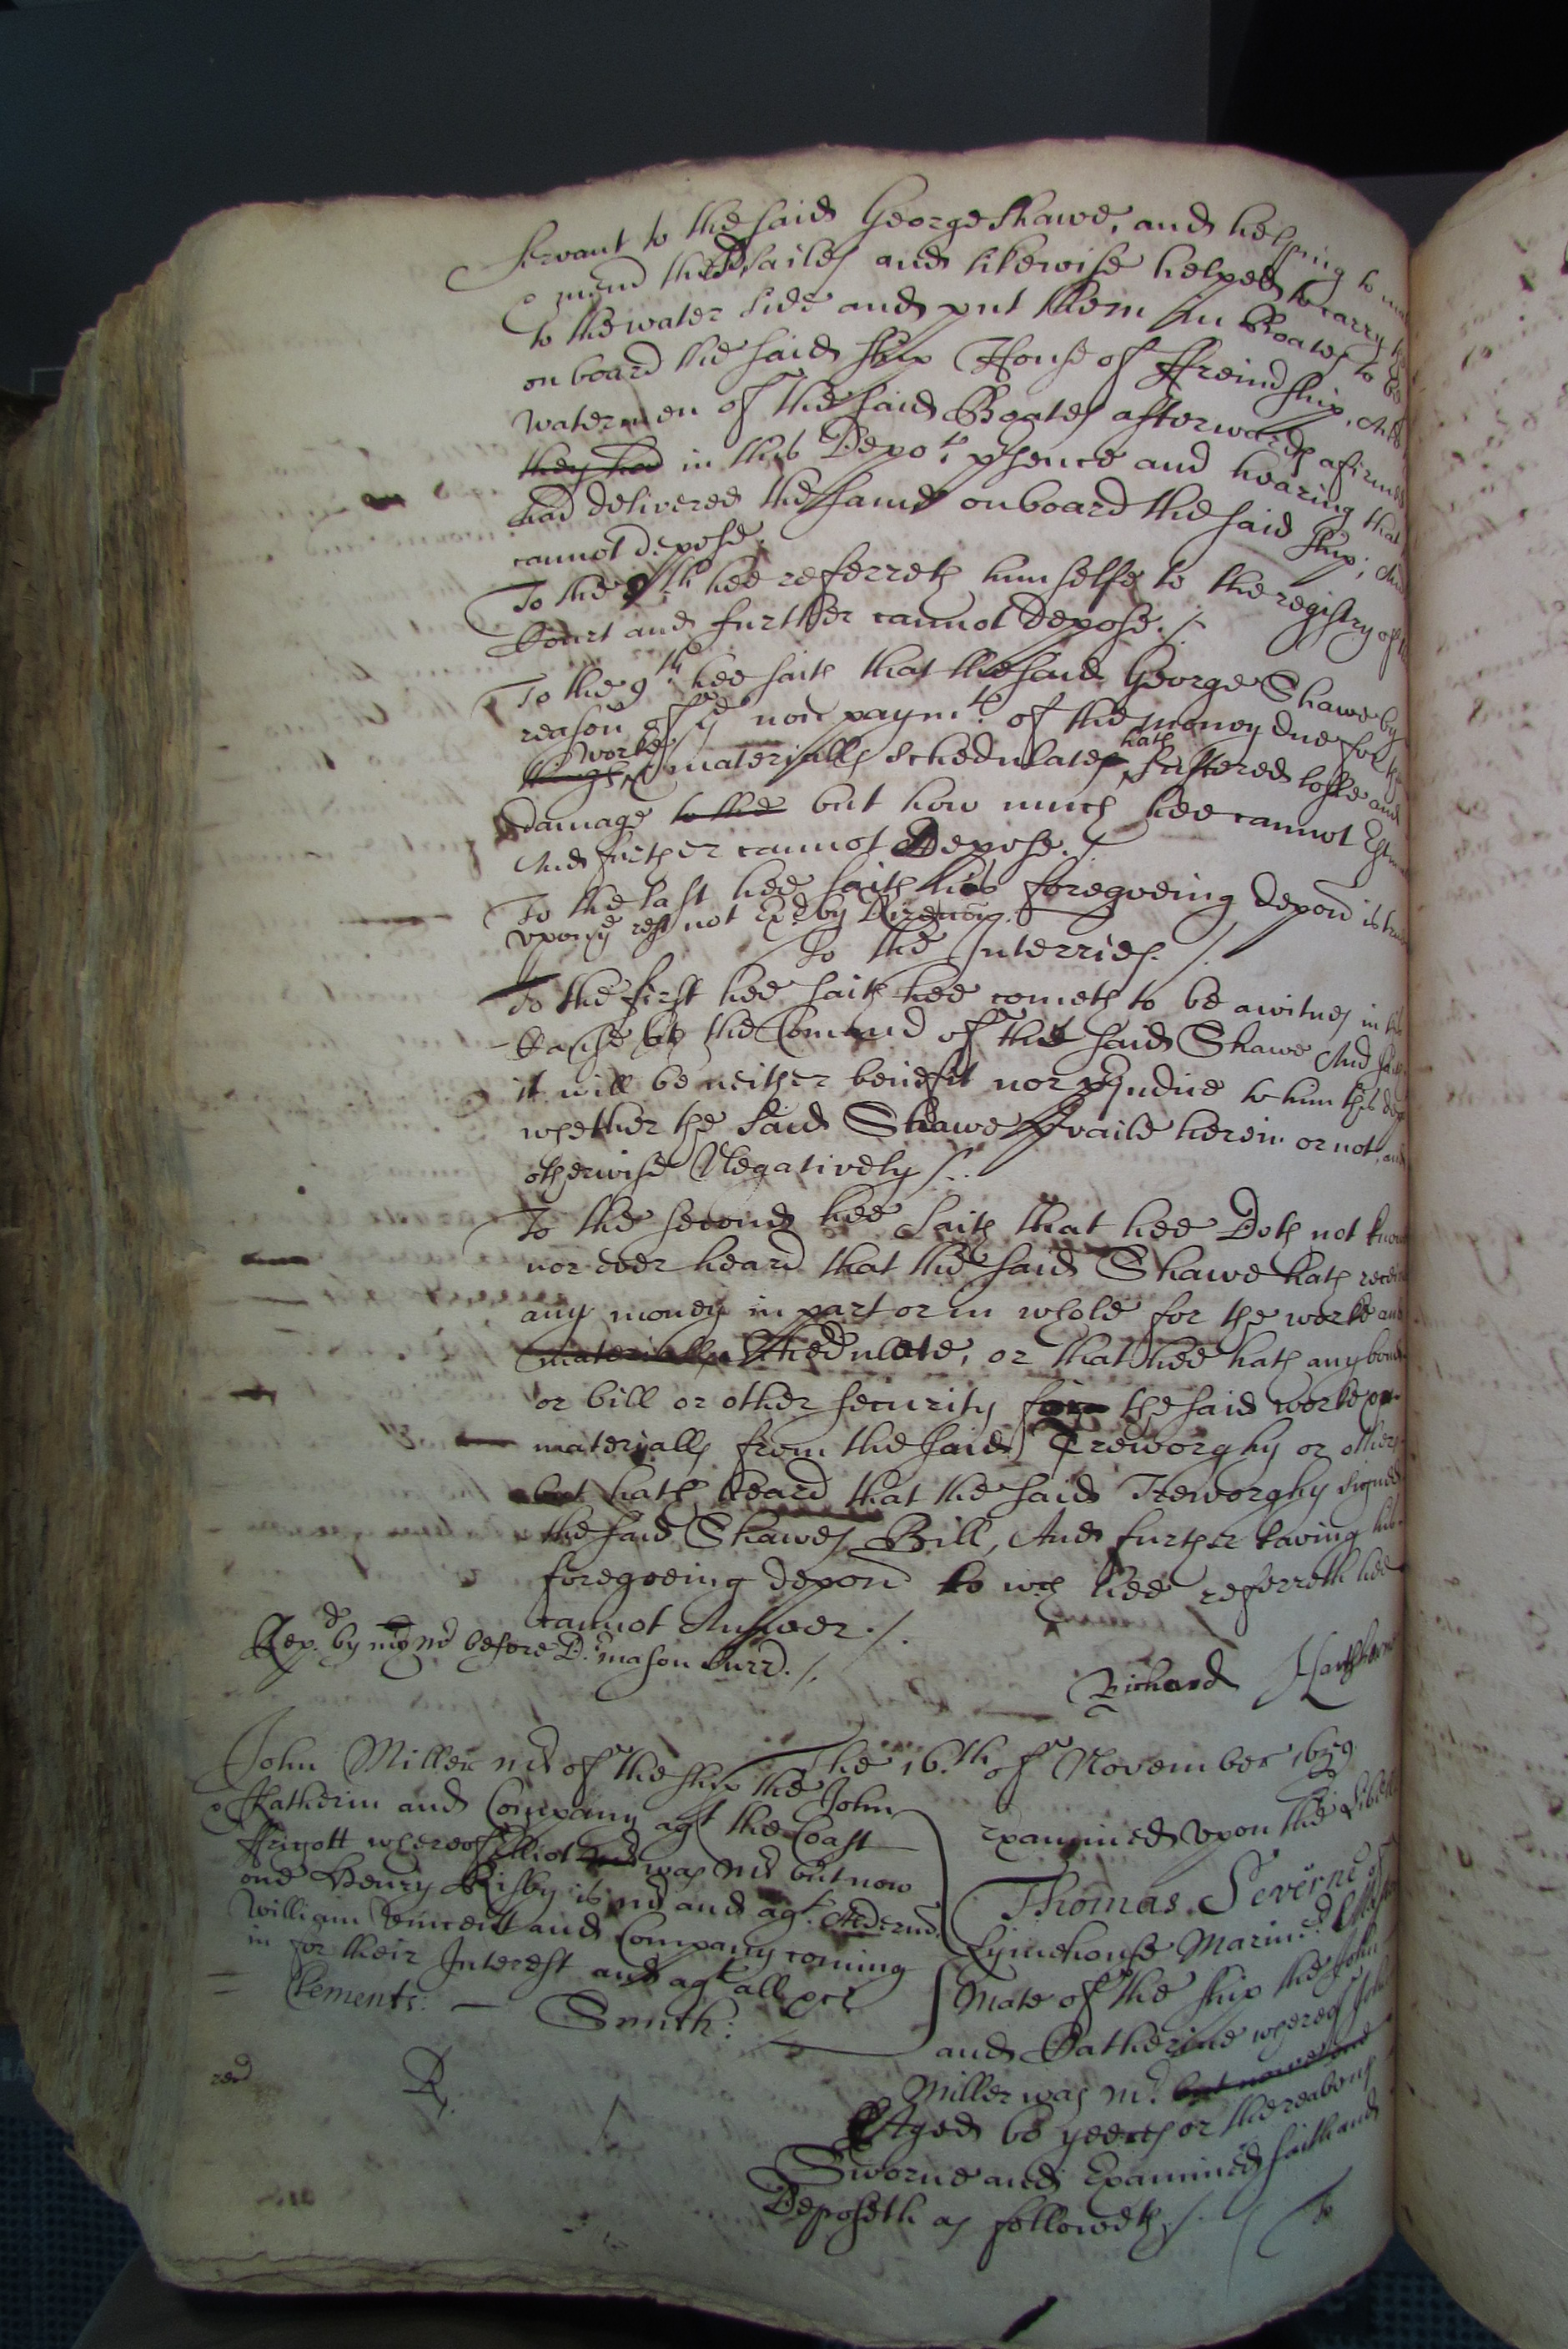 servant to the said George Shawe, and helping to
mend the Sailes and likewise helped to carry
to the water side and put them in Boates to be
on board the said ship House of Freindship, And
watermen of the said Boates afterwards afirmed
they had in this Depo.ts p'sence and hearing that
had delivered the same on board the said ship, And
cannot depose.
To the 8.th hee referreth himselfe to the registry of
Court and further cannot depose./.
To the 9.th hee saith that the said George Shawe by
reason of ye non paym.t of the money due for
worke
things & materialls schedulate, hath suffered losse and
damage to the but how much hee cannot
And further cannot Depose./
To the last hee saith his foregoeing depon is true
upon ye rest not Ex.d by direction.
To the Interries./.
To the first hee saith hee cometh to be a witnes in
Cause by the Comand of the said Shawe And
it will be neither benefit nor p'judice to him this
whether the said Shawe p'vaile herein or not, and
otherwise Negatively/..
To the second hee saith that hee Doth not know
nor ever heard that the said Shawe hath
any money in part or in whole for the worke and
materialls schedulate, or that hee hath any bond
or bill or other security for the said worke or
materialls from the said Treworghy or others
but hath heard that the said Treworghy signed
the said Shawes Bill, And further saving his
foregoeing depon to wch hee referreth hee
cannot Answer./.
Rep.d by before D.r Mason Surr./.
Richard
The 16.th of November 1659
John Miller mr of the ship the John
Katherin and Company agt the Coast
Frigott whereof Elliot was mr but now
one Henry Kisby is mr and agt.
William Vincent and Company coming
in for their Interest and agt all
Clements: — Smith:
Examined upon the Libell
Thomas Severne of
Lymehouse Marin.r
Mate of the ship the John
and Catherine whereof John
Miller was mr. but nowe one
Aged 60 yeeres or thereabouts
Sworne and Examined saith and
Deposeth as followeth/.
R.
To